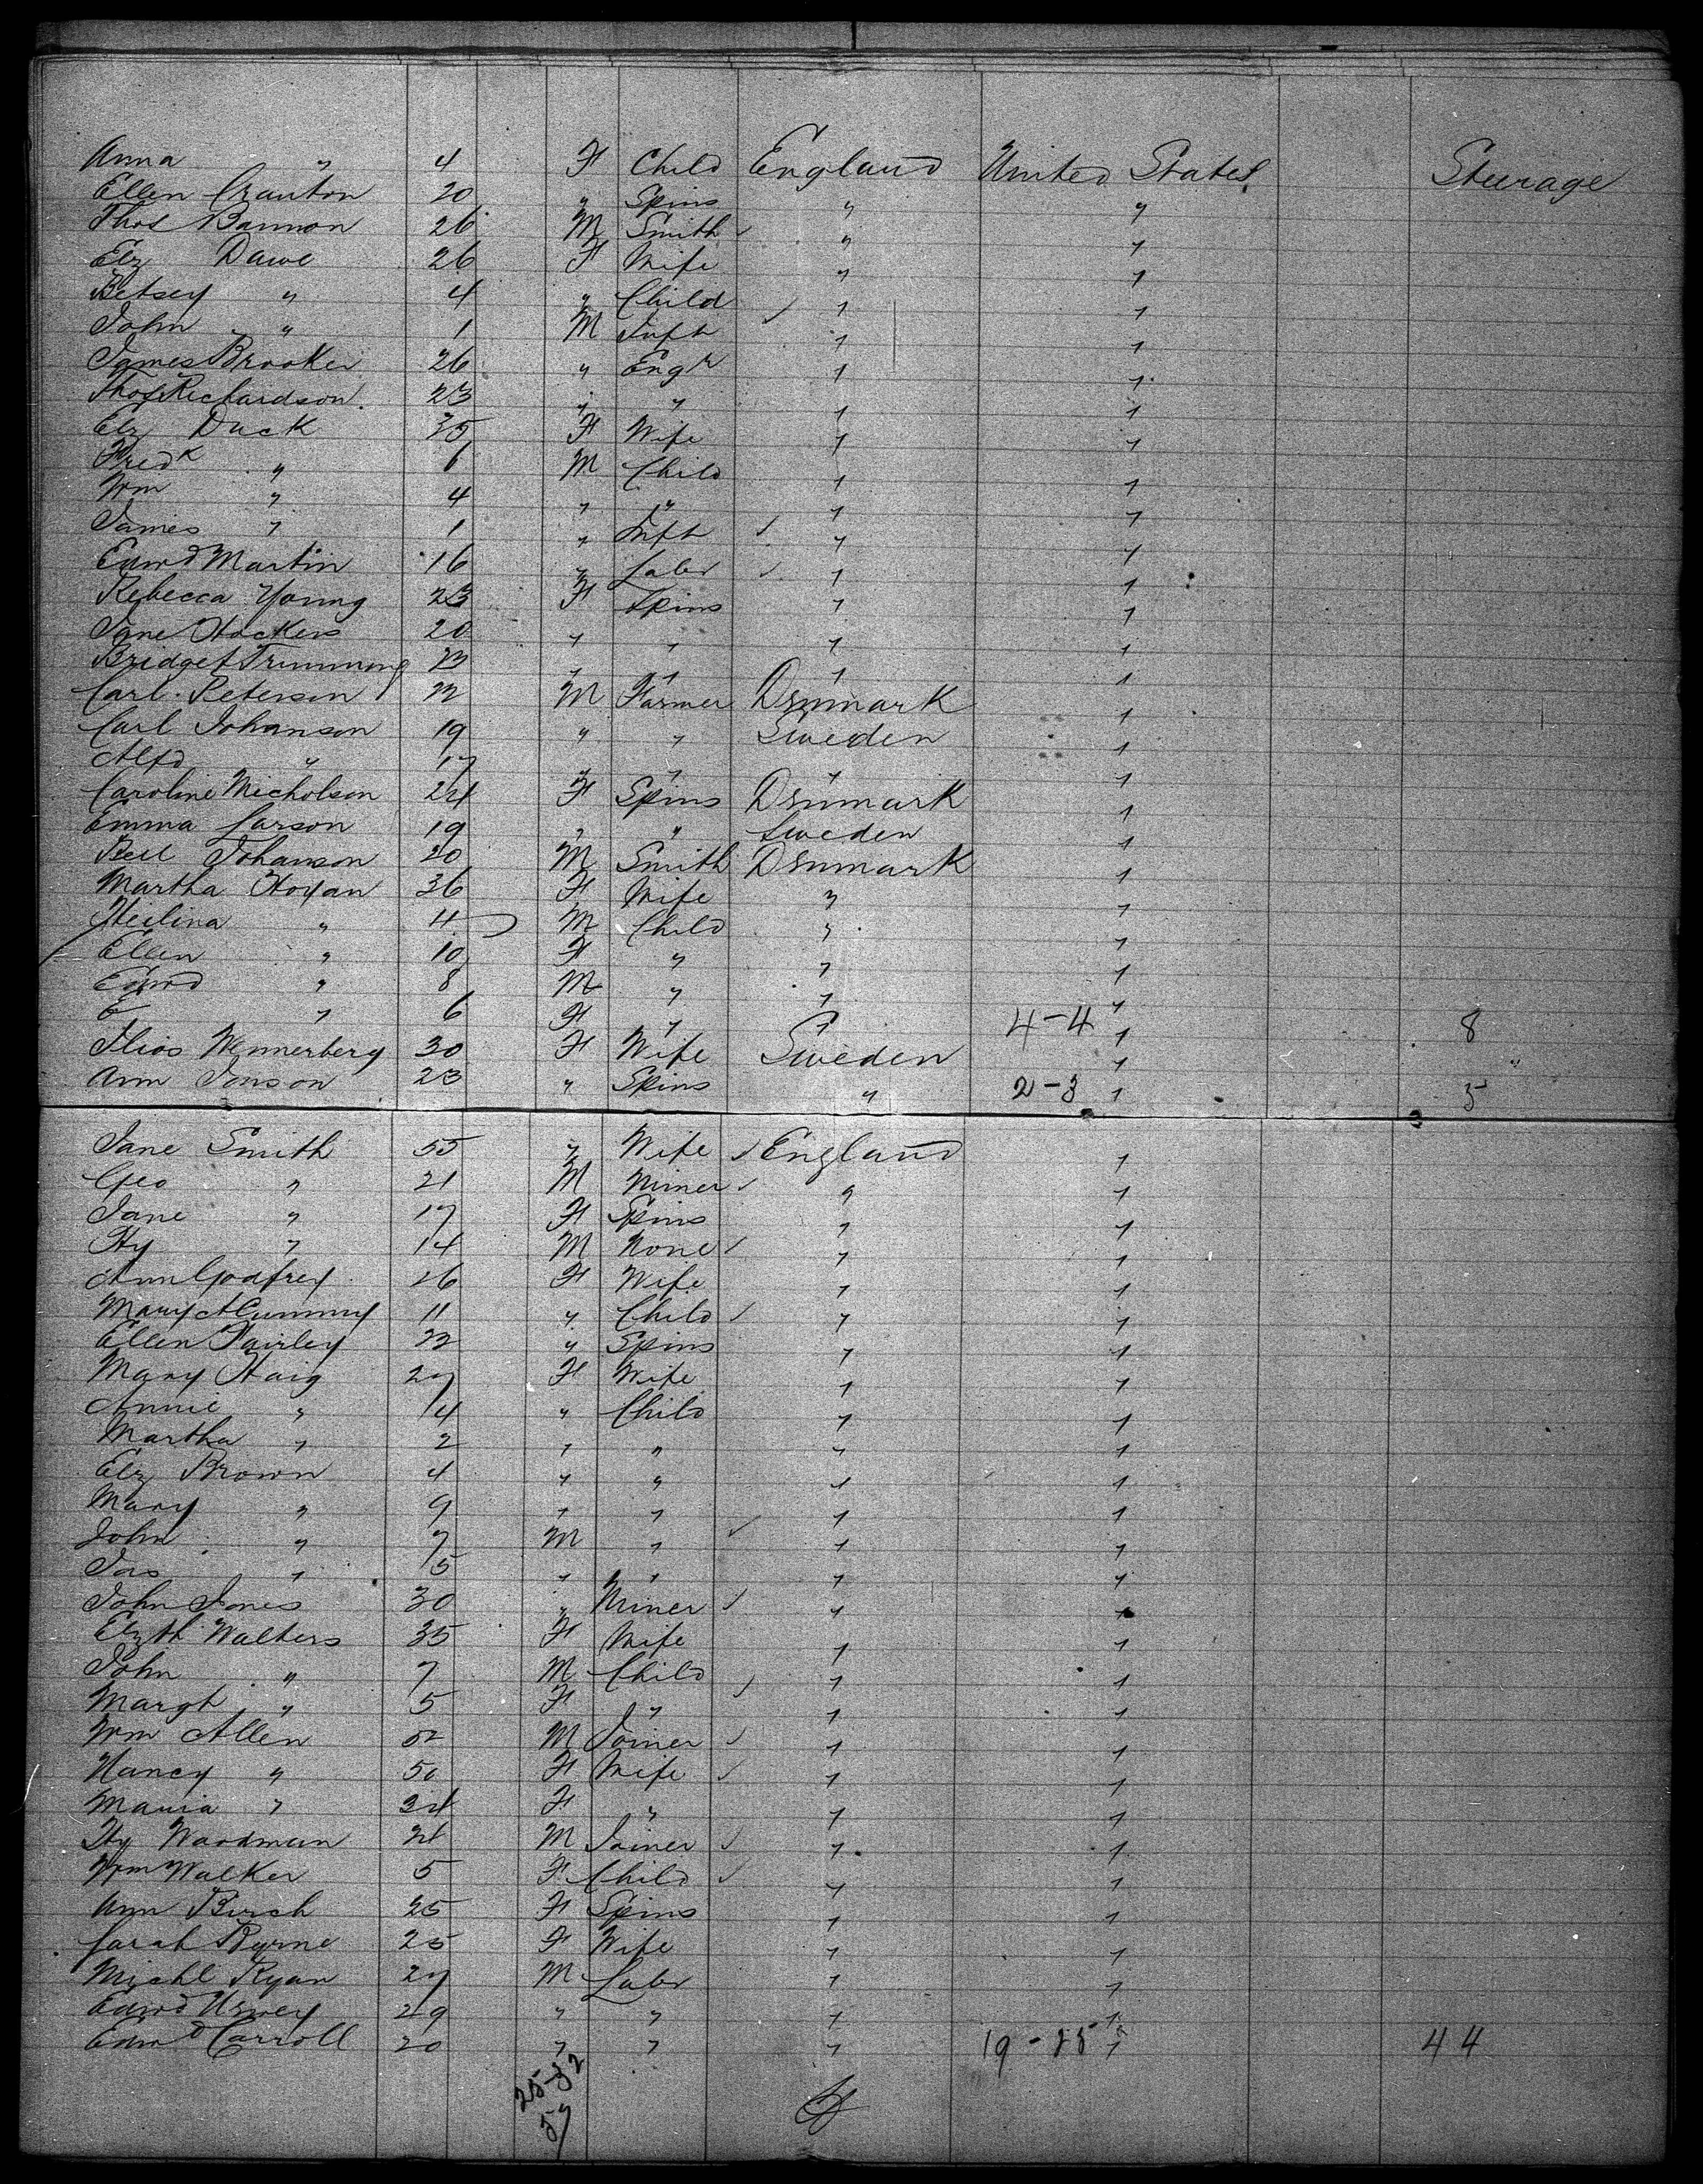 Anna " 4 F Child England United States Steerage
Ellen Cranton 20 " Spins " "
Thos Bannon 26 M Smith " "
Elz Dawe 26 F Wife " "
Betsey " 4 " Child " "
John " 1 M Inft " "
James Brooker 26 " Engr " "
Thos Richardson 23 " " " "
Elz Duck 35 F Wife " "
Fredk " 6 M Child " "
Wm " 4 " " " "
James " 1 " Inft " "
Edwd Martin 16 " Labr " "
Rebecca Young 23 F Spins " "
Jane Hockers 20 " " " "
Bridget Trimming " " " "
Carl Peterson 22 M Farmer Denmark "
Carl Johanson 19 " " Sweden "
Alfd " 17 " " " "
Caroline Nicholson 24 F Spins Denmark "
Emma Larson 19 " " Sweden "
Johanson 20 M Smith Denmark "
Martha Hoyan 36 F Wife " "
" 11 M Child " "
Ellen " 10 F " " "
Edwd " 8 M " " "
E " 6 F " " 4-4 " 8
Wennerberg 30 F Wife Sweden "
Ann Jonson 23 " Spins " 2-3 " 5
Jane Smith 55 " Wife England "
Geo " 21 M Miner " "
Jane " 17 F Spins " "
Hy " 14 M None " "
Ann Godfrey 26 F Wife " "
Mary A 11 " Child " "
Ellen Fairley 22 " Spins " "
Mary Haig 27 F Wife " "
Annie " 4 " Child " "
Martha " 2 " " " "
Elz Brown 4 " " " "
Mary " 9 " " " "
John " 7 M " " "
Jas " 5 " " " "
John Jones 30 " Miner " "
Elzth Walters 35 F Wife " "
John " 7 M Child " "
Margt " 5 F " " "
Wm Allen 52 M Joiner " "
Nancy " 50 F Wife " "
Maria " 24 F " " "
Hy Woodman 21 M Joiner " "
Wm Walker 5 F Child " "
Ann Birch 25 F Spins " "
Sarah Byrne 25 F Wife " "
Michl Ryan 27 M Labr " "
Edwd 29 " " " "
Edwd Carroll 20 " " " 19-25 " 44
25-32
57